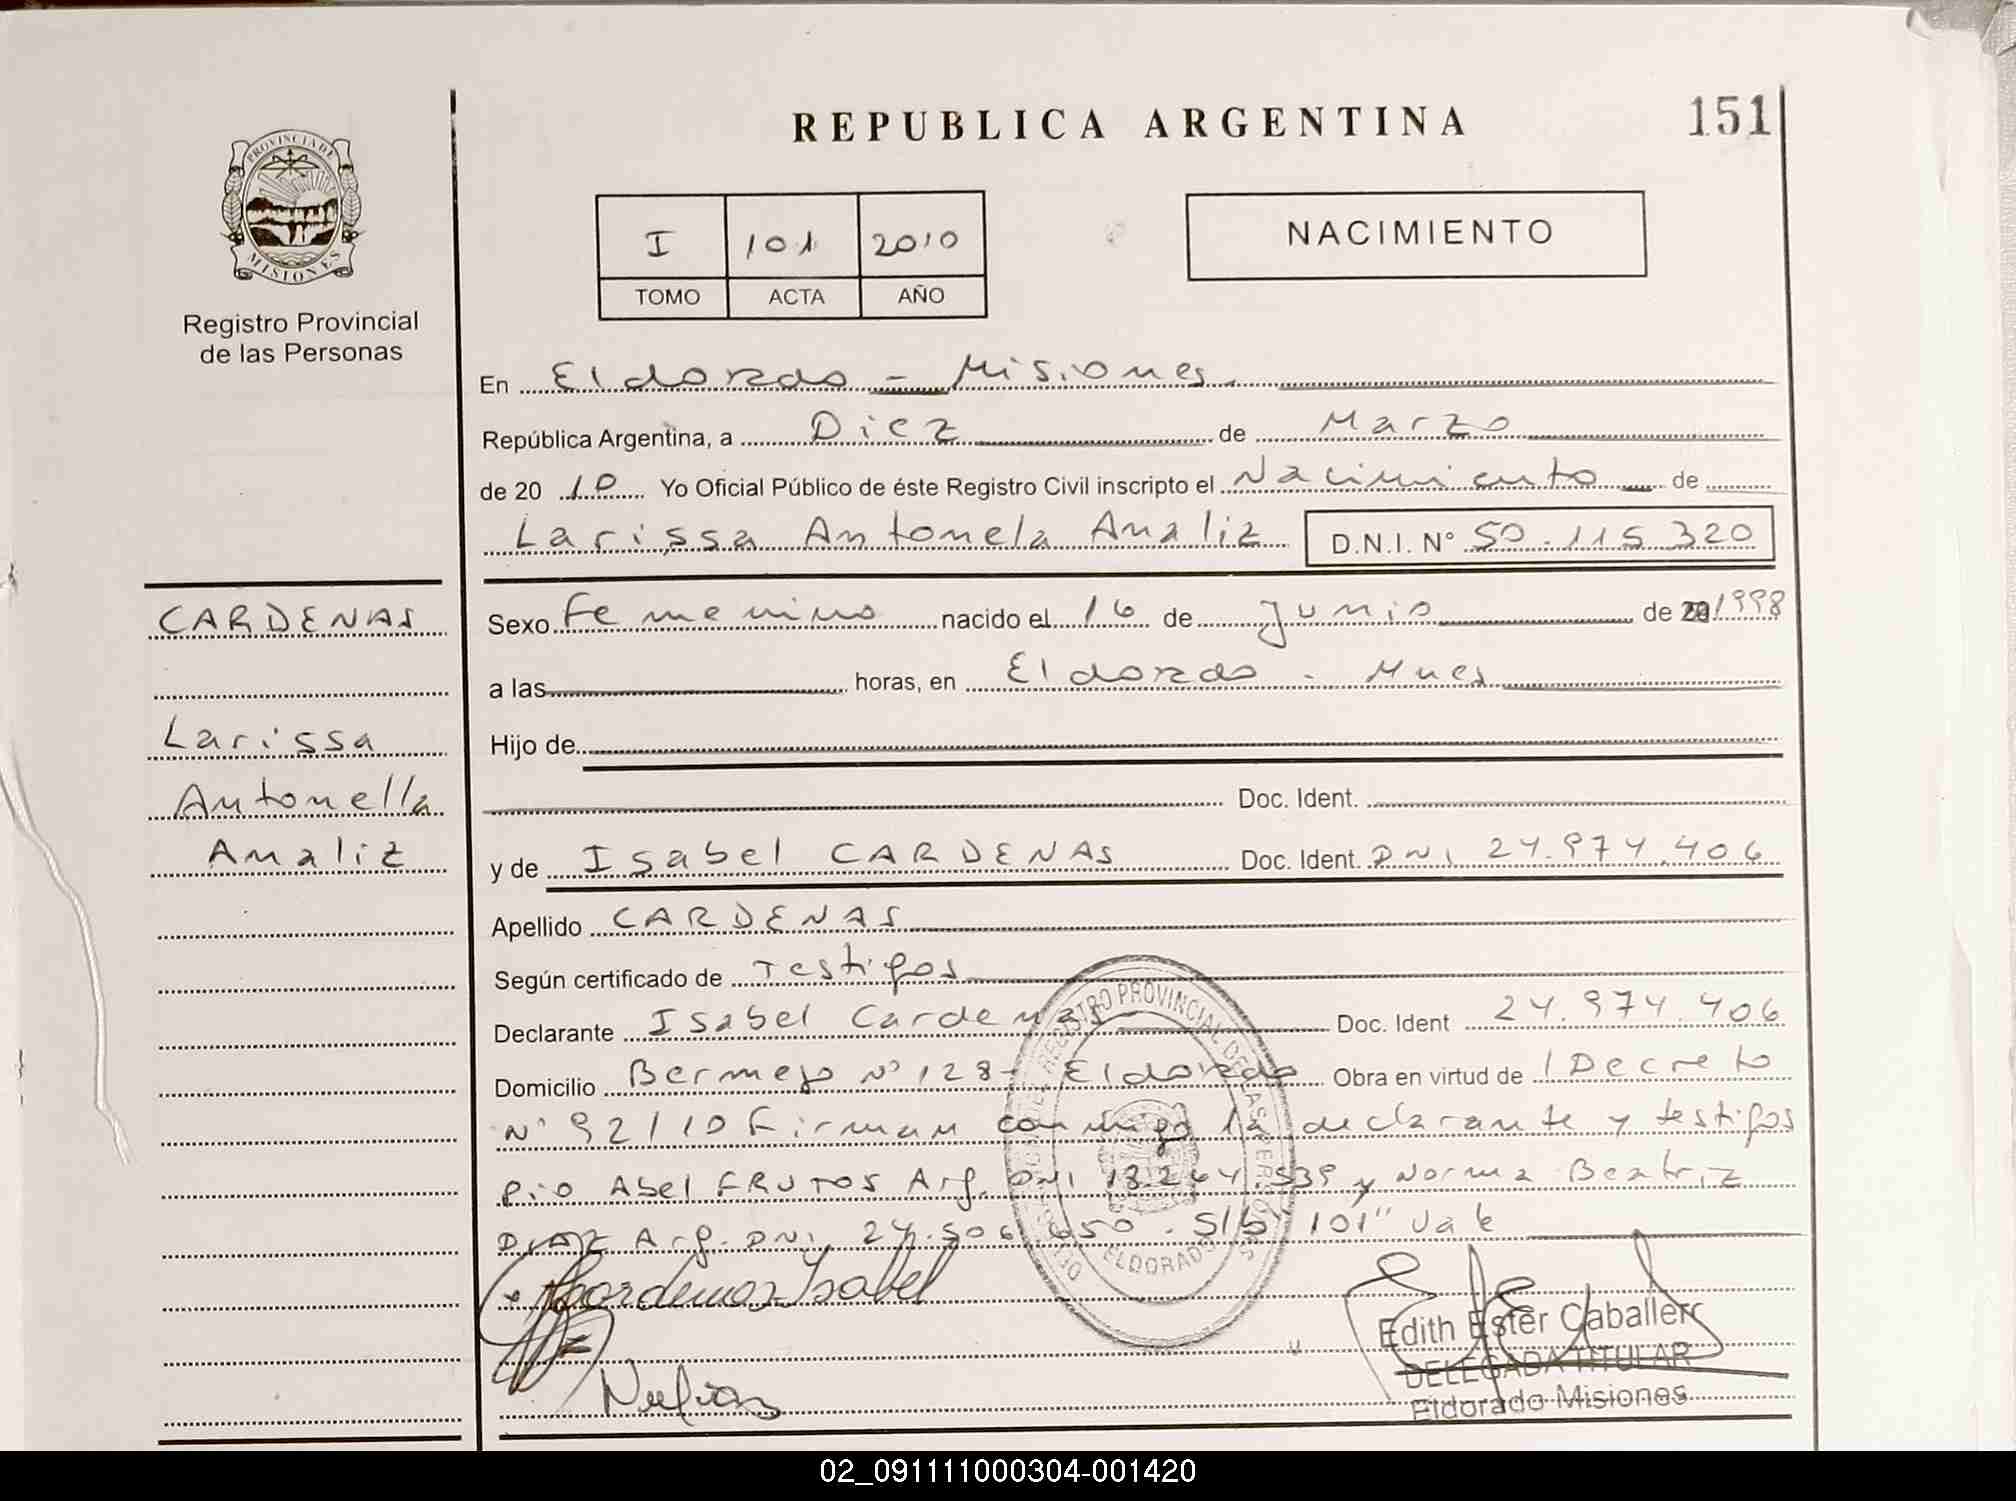 REPUBLICA ARGENTINA
151
PROVINCIA DE
MISIONES
Registro Provincial
de las Personas
I 101 2010
TOMO ACTA AÑO
NACIMIENTO
En Eldorado - Misiones
República Argentina, a Diez de Marzo
de 20 10 Yo Oficial Público de éste Registro Civil inscripto el Nacimiento de
Larissa Antonela Analiz D.N.I. N° 50.115.320
CARDENAS
Larissa
Antonella
Analiz
Sexo Femenino nacido el 16 de Junio de 1998
a las horas, en Eldorado - Mnes
Hijo de
Doc. Ident.
y de Isabel CARDENAS Doc. Ident. DNI 24.974.406
Apellido CARDENAS
Según certificado de Testigos
Declarante Isabel Cardenas Doc. Ident 24.974.406
Domicilio Bermejo N° 128- Eldorado Obra en virtud de / Decreto
N° 92/10 Firman conmigo la declarante y testigos
Pio Abel FRUTOS Arg. DNI 18.264.539 y Norma Beatriz
DIAZ Arg. DNI 24.506.650. S/b "101" Vale
REGISTRO PROVINCIAL DE LAS PERSONAS
ELDORADO
Cardenas Isabel
Edith Ester Caballero
DELEGADA TITULAR
Eldorado Misiones
02_091111000304-001420